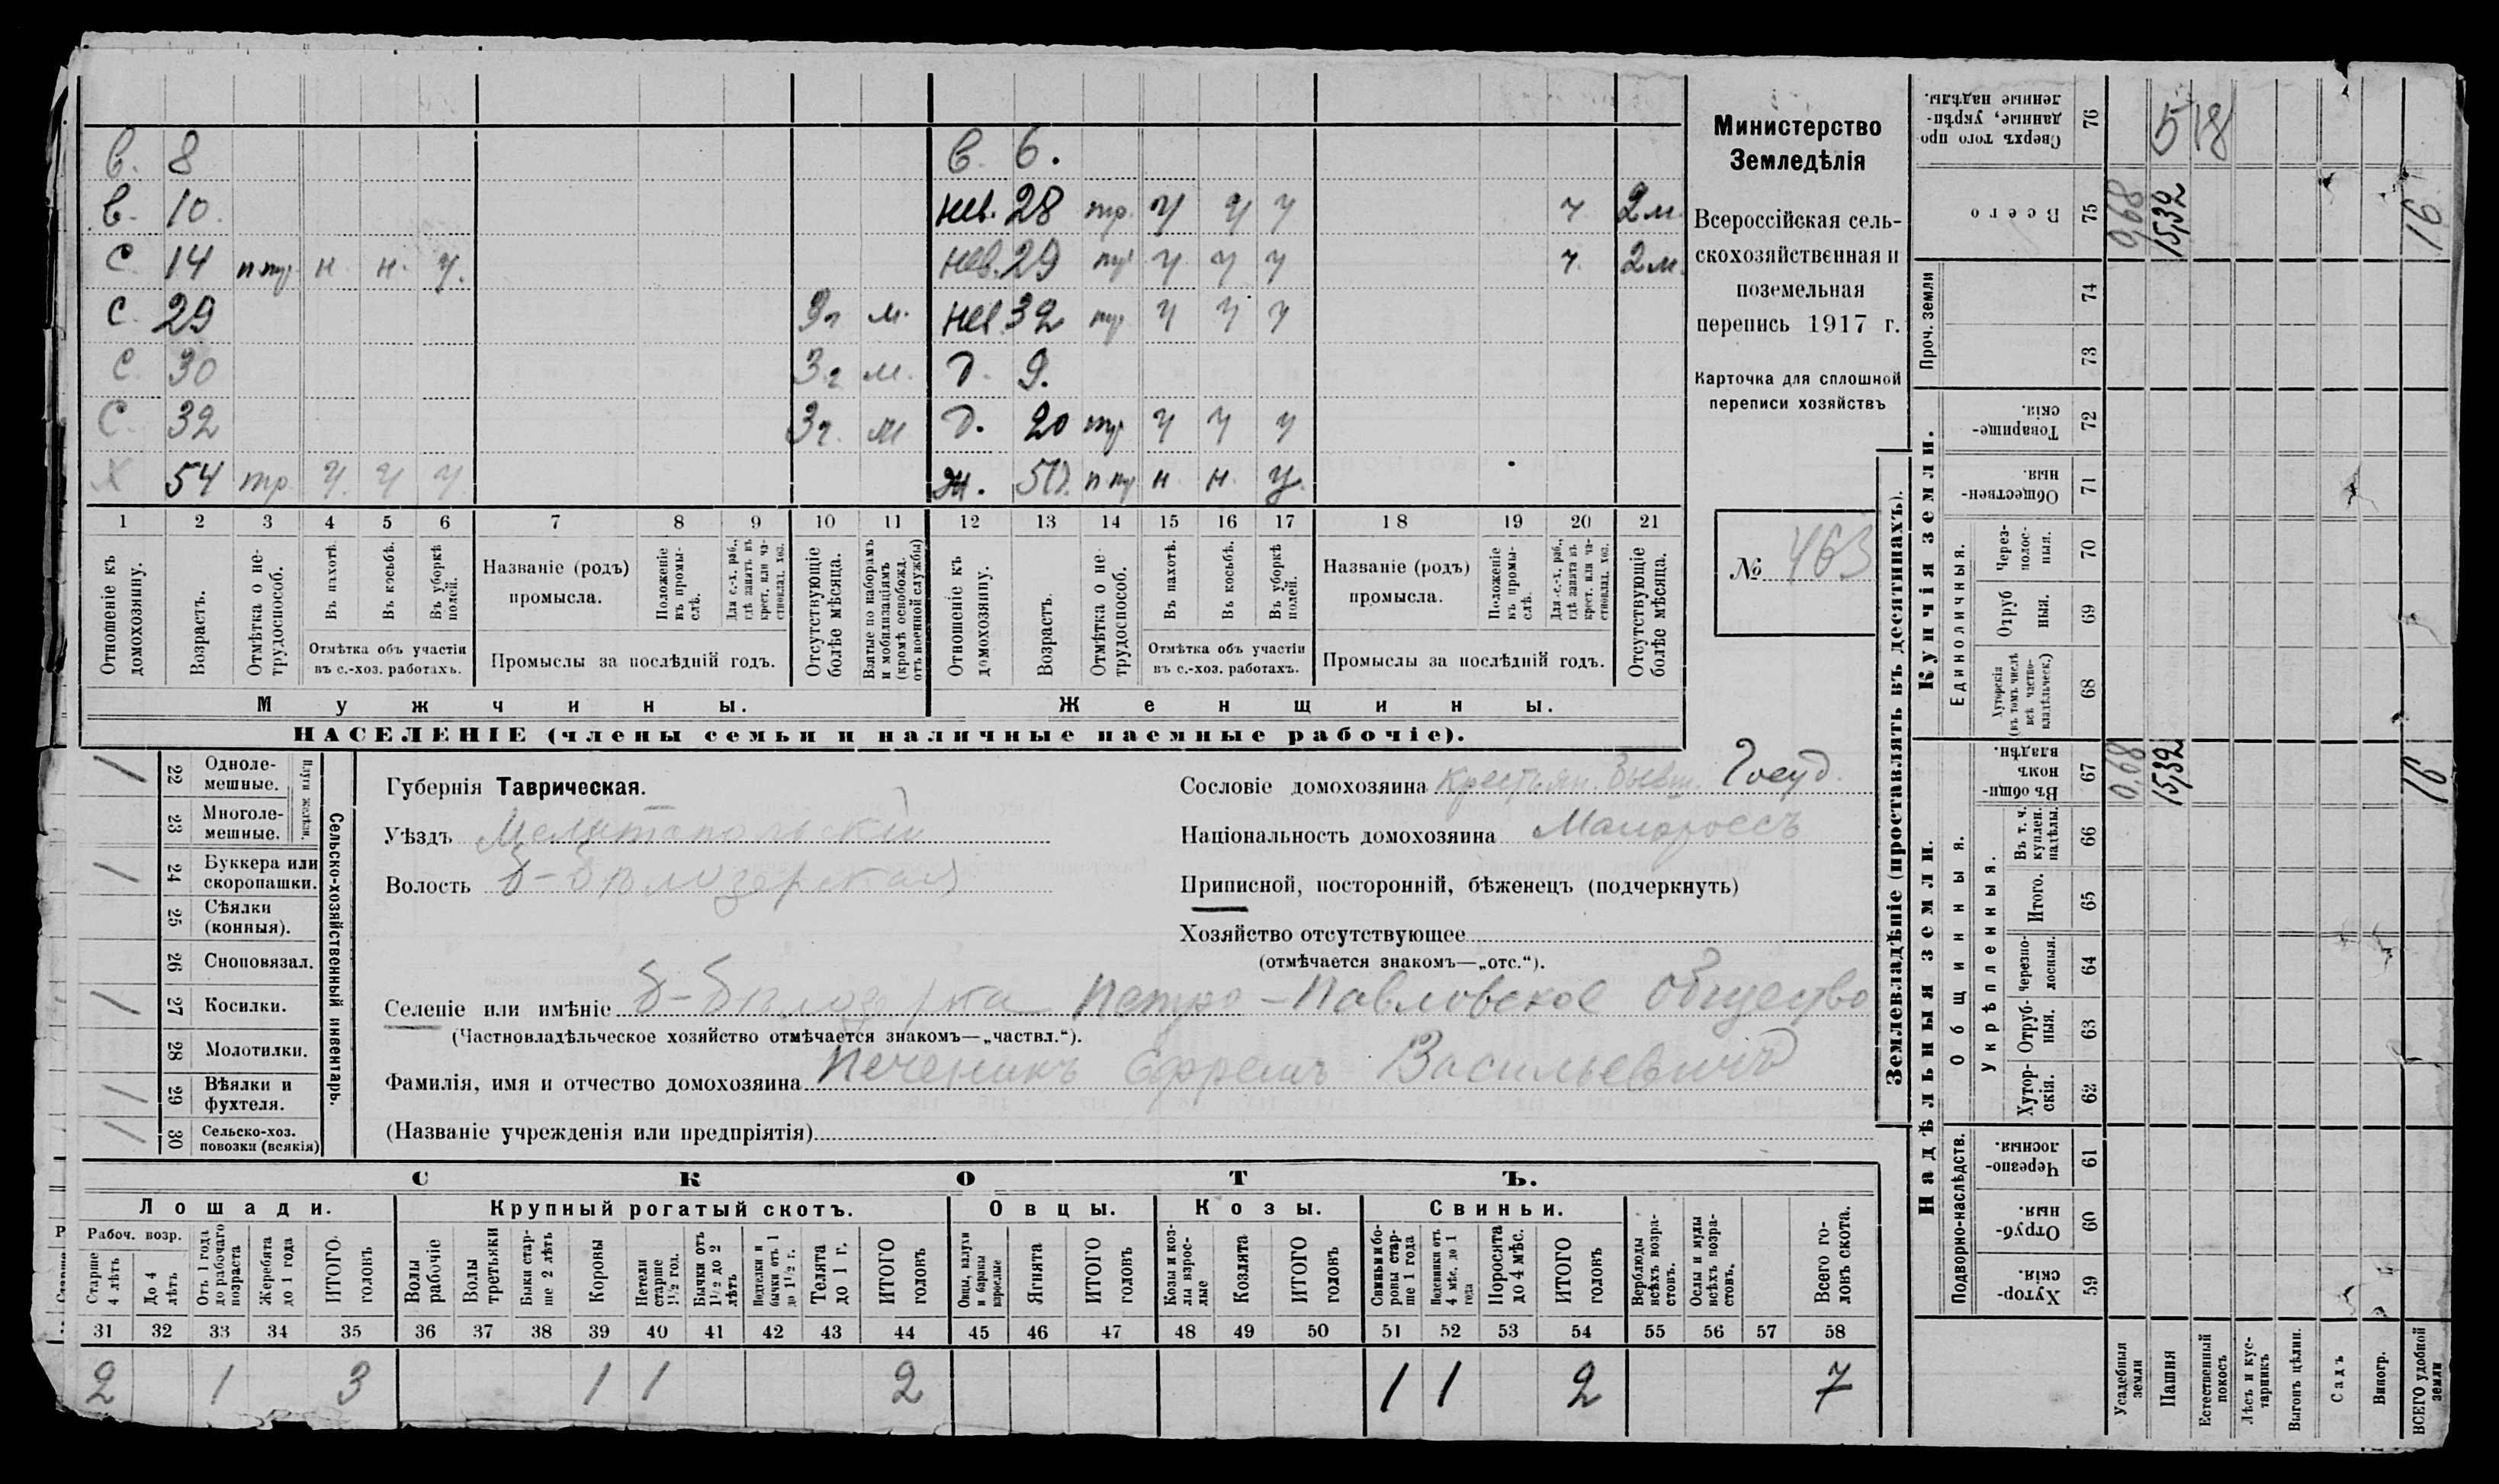 в. 8 в. 6.
в. 10. нев. 28 тр. у у у ч. 2 м.
С. 14 п тр н. н. у. нев. 29 тр у. у у ч. 2 м.
С. 29 3 г м. нев. 32 тр у у у
С. 30 3 г м. д. 9.
С. 32 3 г. м д. 20 тр у у у
Х 54 тр у. у у ж. 50. п тр н н. у.
1 2 3 4 5 6 7 8 9 10 11 12 13 14 15 16 17 18 19 20 21
Отношеніе къ домохозяину.
Возрастъ.
Отмѣтка о нетрудоспособ.
Въ пахотѣ.
Въ косьбѣ.
Въ уборкѣ полей.
Отмѣтка объ участіи
въ с.-хоз. работахъ.
Названіе (родъ)
промысла.
Положеніе въ промыслѣ.
Для с.-х. раб., гдѣ занятъ въ крест. или частновлад. хоз.
Промыслы за послѣдній годъ.
Отсутствующіе болѣе мѣсяца.
Взятые по наборамъ и мобилизаціямъ (кромѣ освобожд. отъ военной службы)
Отношеніе къ домохозяину.
Возрастъ.
Отмѣтка о нетрудоспособ.
Въ пахотѣ.
Въ косьбѣ.
Въ уборкѣ полей.
Отмѣтка объ участіи
въ с.-хоз. работахъ.
Названіе (родъ)
промысла.
Положеніе въ промыслѣ.
Для с.-х. раб., гдѣ занята въ крест. или частновлад. хоз.
Промыслы за послѣдній годъ.
Отсутствующіе болѣе мѣсяца.
Мужчины. Женщины.
НАСЕЛЕНІЕ (члены семьи и наличные наемные рабочіе).
Министерство
Земледѣлія
Всероссійская сель-
скохозяйственная и
поземельная
перепись 1917 г.
Карточка для сплошной
переписи хозяйствъ
№ 463
Сельско-хозяйственный инвентарь.
Плуги желѣзн.
/ 22 Однолемешные.
23 Многолемешные.
/ 24 Буккера или скоропашки.
25 Сѣялки (конныя).
26 Сноповязал.
/ 27 Косилки.
28 Молотилки.
/ 29 Вѣялки и фухтеля.
/ 30 Сельско-хоз. повозки (всякія)
Губернія Таврическая.
Уѣздъ Мелитопольскій
Волость Б-Бѣлозерская
Сословіе домохозяина Крестьян. бывш. Госуд.
Національность домохозяина Малороссъ
Приписной, посторонній, бѣженецъ (подчеркнуть)
Хозяйство отсутствующее
(отмѣчается знакомъ—„отс.“).
Селеніе или имѣніе Б-Бѣлозерка Петро-Павловское Общество
(Частновладѣльческое хозяйство отмѣчается знакомъ—„частвл.“).
Фамилія, имя и отчество домохозяина Печеникъ Ефремъ Васильевичъ
(Названіе учрежденія или предпріятія)
СКОТЪ.
Лошади. Крупный рогатый скотъ. Овцы. Козы. Свиньи.
Рабоч. возр.
Старше 4 лѣтъ
До 4 лѣтъ
Отъ 1 года до рабочаго возраста
Жеребята до 1 года
ИТОГО головъ
Волы рабочіе
Волы третьяки
Быки старше 2 лѣтъ
Коровы
Нетели старше 1½ год.
Бычки отъ 1½ до 2 лѣтъ
Подтелки и бычки отъ 1 до 1½ г.
Телята до 1 г.
ИТОГО головъ
Овцы, валухи и бараны взрослые
Ягнята
ИТОГО головъ
Козы и козлы взрослые
Козлята
ИТОГО головъ
Свиньи и боровы старше 1 года
Подсвинки отъ 4 мѣс. до 1 года
Поросята до 4 мѣс.
ИТОГО головъ
Верблюды всѣхъ возрастовъ.
Ослы и мулы всѣхъ возрастовъ.
Всего головъ скота.
31 32 33 34 35 36 37 38 39 40 41 42 43 44 45 46 47 48 49 50 51 52 53 54 55 56 57 58
2 1 3 1 1 2 1 1 2 7
Землевладѣніе (проставлять въ десятинахъ).
Надѣльныя земли. Купчія земли. Проч. земли
Подворно-наслѣдств.
Общинныя.
Укрѣпленныя.
Единоличныя.
Хуторскія. 59
Отрубныя. 60
Черезполосныя. 61
Хуторскія. 62
Отрубныя. 63
черезполосныя. 64
Итого. 65
Въ т. ч. куплен. надѣлы. 66
Въ общинномъ владѣн. 67 0,68 15,32 16
Хуторскія (въ томъ числѣ всѣ частновладѣльческ.) 68
Отрубныя. 69
Черезполосныя. 70
Общественныя. 71
Товарищескія. 72
73
74
Всего 75 0,68 15,32 16
Сверхъ того проданные, укрѣпленные надѣлы. 76 5 18
Усадебныя земли
Пашня
Естественный покосъ
Лѣсъ и кустарникъ
Выгонъ цѣлин.
Садъ
Виногр.
ВСЕГО удобной земли